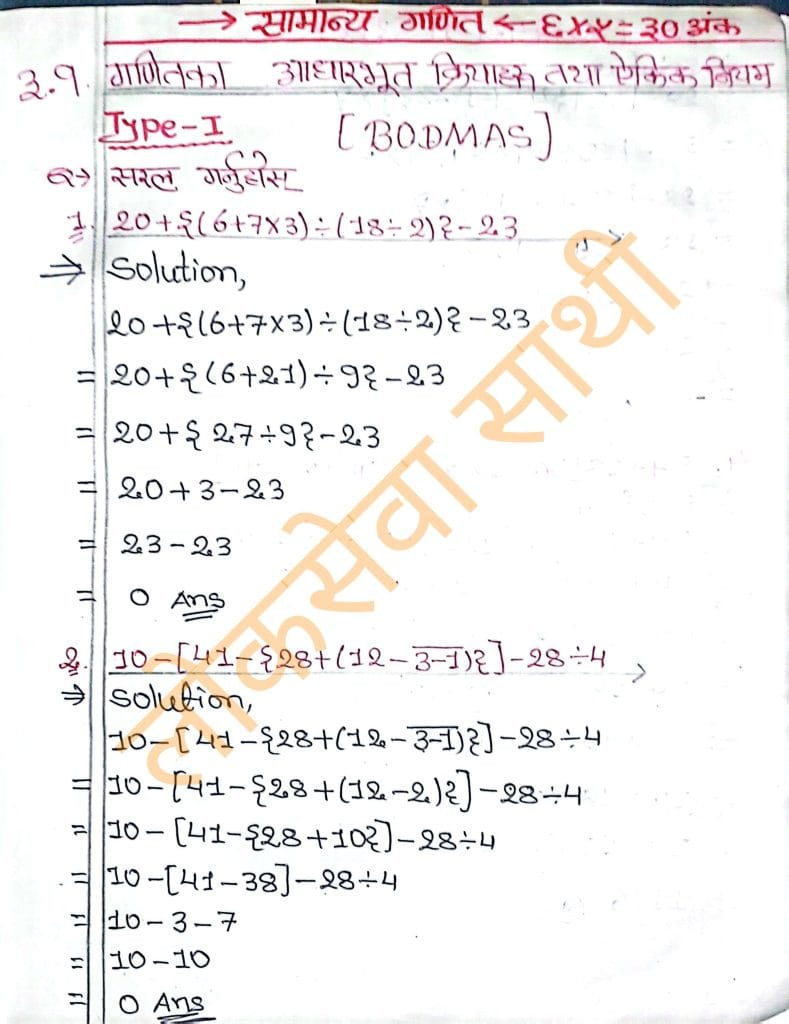 → सामान्य गणित ← ६×५=३० अंक
३.१. गणितका आधारभूत क्रियाहरू तथा ऐकिक नियम
Type-I [BODMAS]
Q→ सरल गर्नुहोस
1. 20+{(6+7×3)÷(18÷2)}-23
⇒ Solution,
20+{(6+7×3)÷(18÷2)}-23
= 20+{(6+21)÷9}-23
= 20+{27÷9}-23
= 20+3-23
= 23-23
= 0 Ans
2. 10-[41-{28+(12-3̅-̅1̅)}]-28÷4
⇒ Solution,
10-[41-{28+(12-3̅-̅1̅)}]-28÷4
= 10-[41-{28+(12-2)}]-28÷4
= 10-[41-{28+10}]-28÷4
= 10-[41-38]-28÷4
= 10-3-7
= 10-10
= 0 Ans
लोकसेवा साथी